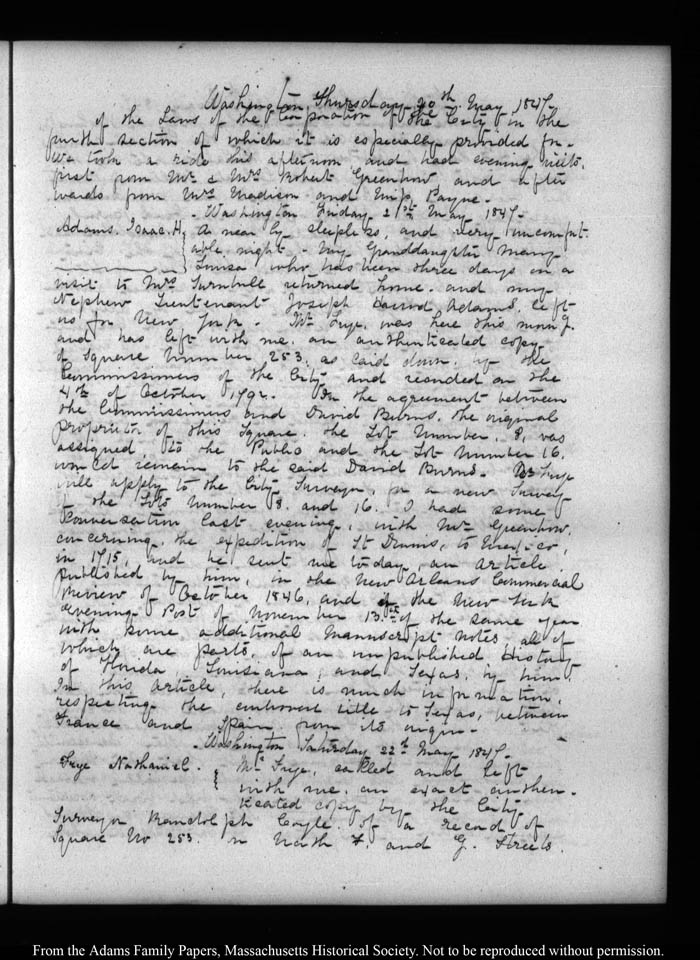 Washington, Thursday 20th May 1847.
of the Laws of the Corporation of the City in the
fourth section of which it is especially provided for.
We took a ride this afternoon and had evening visits.
first from Mr & Mrs Robert Greenhow and after
wards from Mrs Madison and Miss Payne.
Washington Friday 21st May 1847.
Adams. Isaac. H. A nearly sleepless, and very uncomfort
able, night. My Granddaughter Mary
Louisa who has been three days on a
visit to Mrs Turnbull returned home. and my
Nephew Lieutenant Joseph Harrod Adams. left
us for New York. Mr Frye. was here this morng.
and has left with me. an authenticated copy
of Square Number 253. as laid down, by the
Commissioners of the City and recorded on the
4th of October 1792. In the agreement between
the Commissioners and David Burns. the original
proprietor of this Square. the Lot Number. 8, was
assigned, to the Public and the Lot Number 16.
would remain to the said David Burns. Mr Frye
will apply to the City Surveyor, for a new Survey
of the Lots Number 8. and 16. I had some
conversation last evening, with Mr Greenhow.
concerning. the expedition of St Dennis, to Mexico,
in 1715, and he sent me today, an article,
published by him, in the New Orleans Commercial
Review of October 1846, and the New York
evening Post of November 13th of the same year
with some additional Manuscript notes all of
which are parts. of an unpublished History
of Florida Louisiana, and Texas, by him,
In this article, there is much information,
respecting the controvert title to Texas, between
France and Spain from its origin.
Washington Saturday 22d May 1847.
Frye Nathaniel. Mr Frye, called and left
with me. an exact authen-
ticated copy by the City
Surveyor Randolph Coyle. of a record of
Square No 253. on North F. and G. Streets.
From the Adams Family Papers, Massachusetts Historical Society. Not to be reproduced without permission.